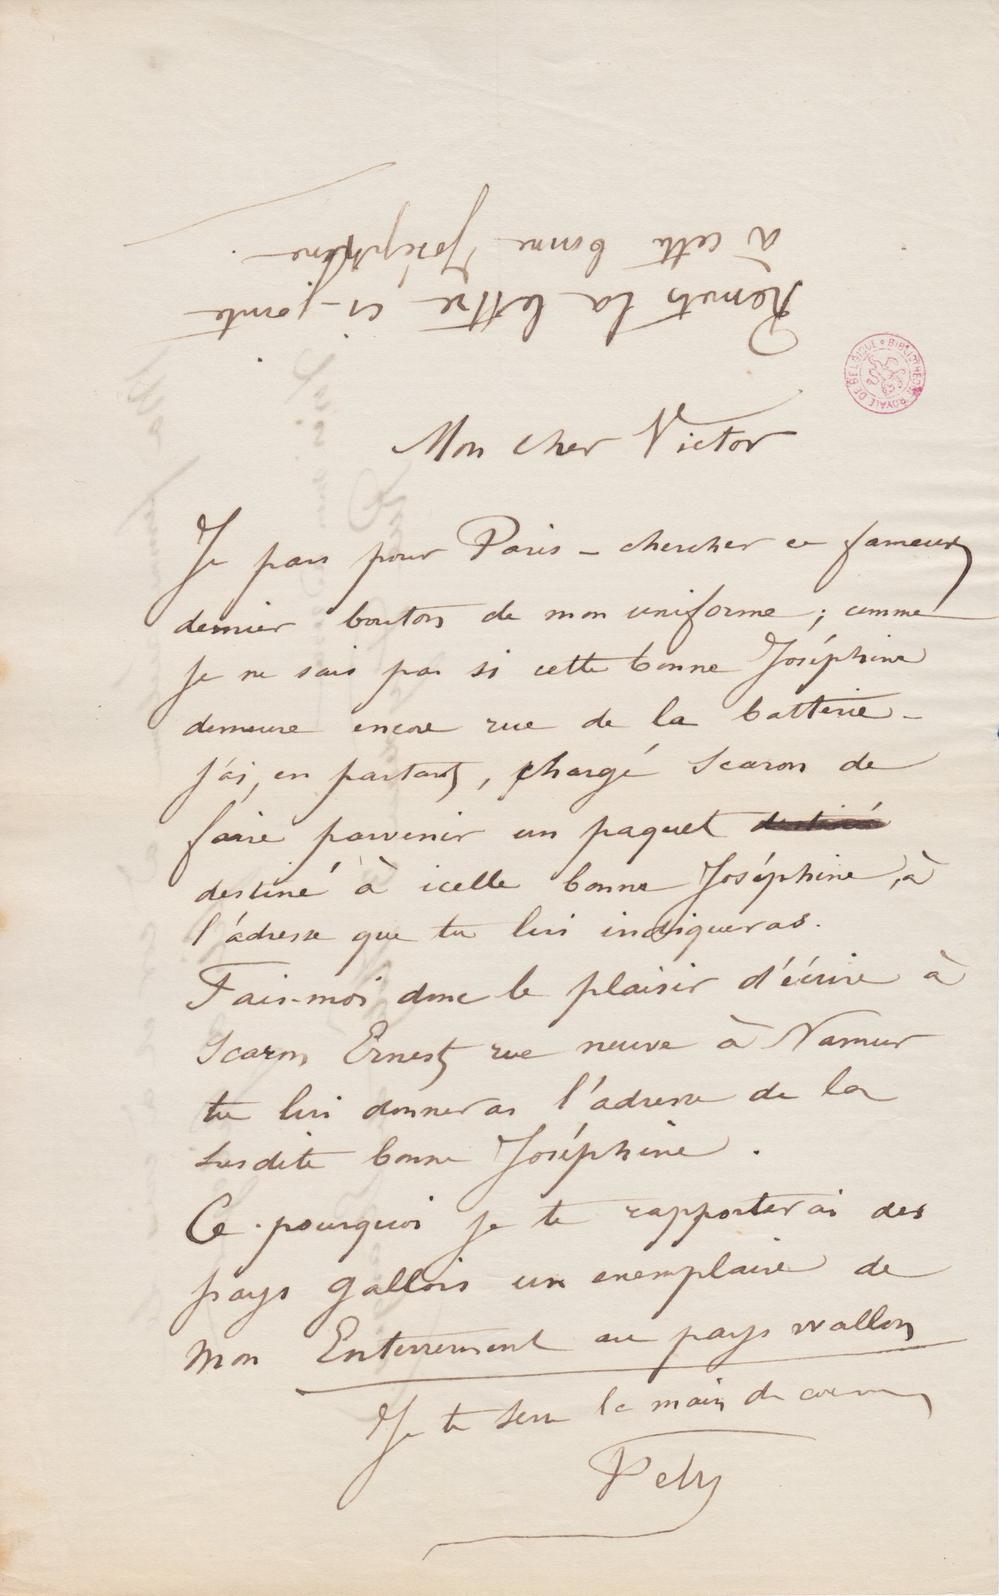 Remets la lettre ci-jointe
à cette bonne Joséphine
BIBLIOTHÈQUE ROYALE DE BELGIQUE
Mon cher Victor
Je pars pour Paris – chercher ce fameux
dernier bouton de mon uniforme ; comme
je ne sais pas si cette bonne Joséphine
demeure encore rue de la batterie –
j'ai, en partant, chargé Scaron de
faire parvenir un paquet destiné
destiné à icelle bonne Joséphine, à
l'adresse que tu lui indiqueras.
Fais-moi donc le plaisir d'écrire à
Scaron Ernest rue neuve à Namur
tu lui donneras l'adresse de la
susdite bonne Joséphine.
Ce pourquoi je te rapporterai des
pays gallois un exemplaire de
mon Enterrement au pays wallon
Je te serre la main de coeur
Fely